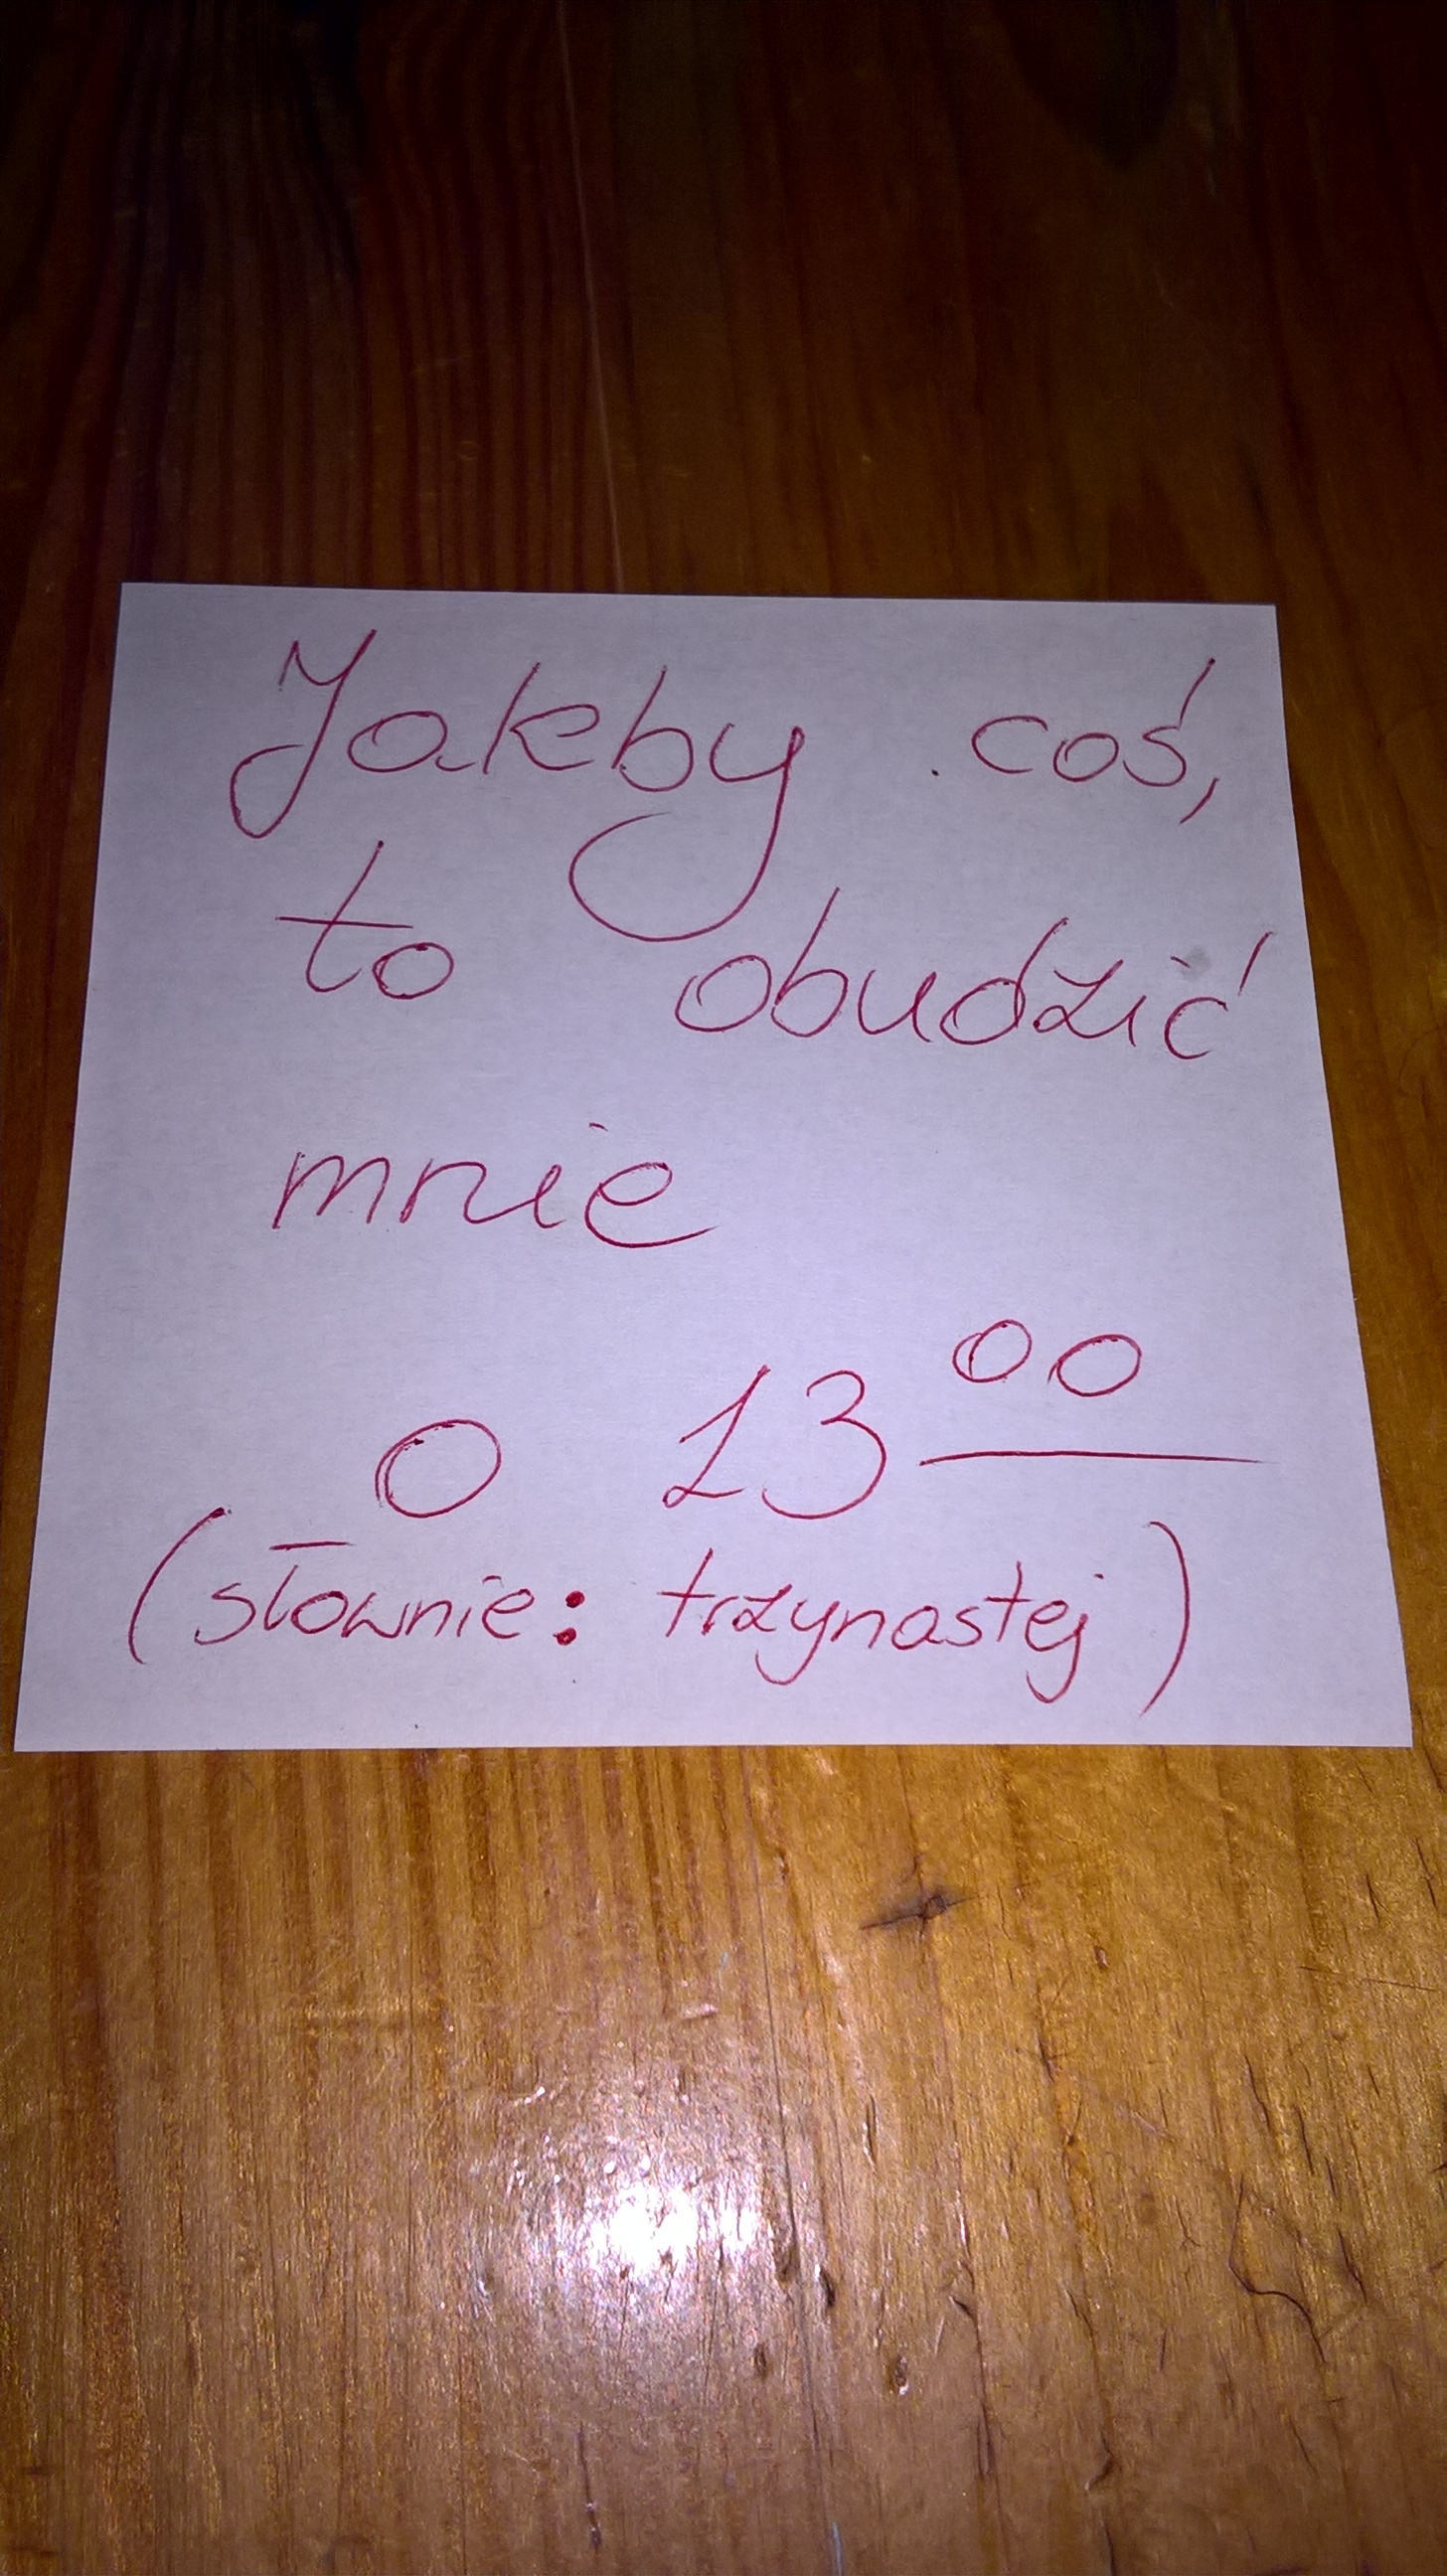 Jakby coś,
to obudzić
mnie
o 13⁰⁰
(słownie: trzynastej)